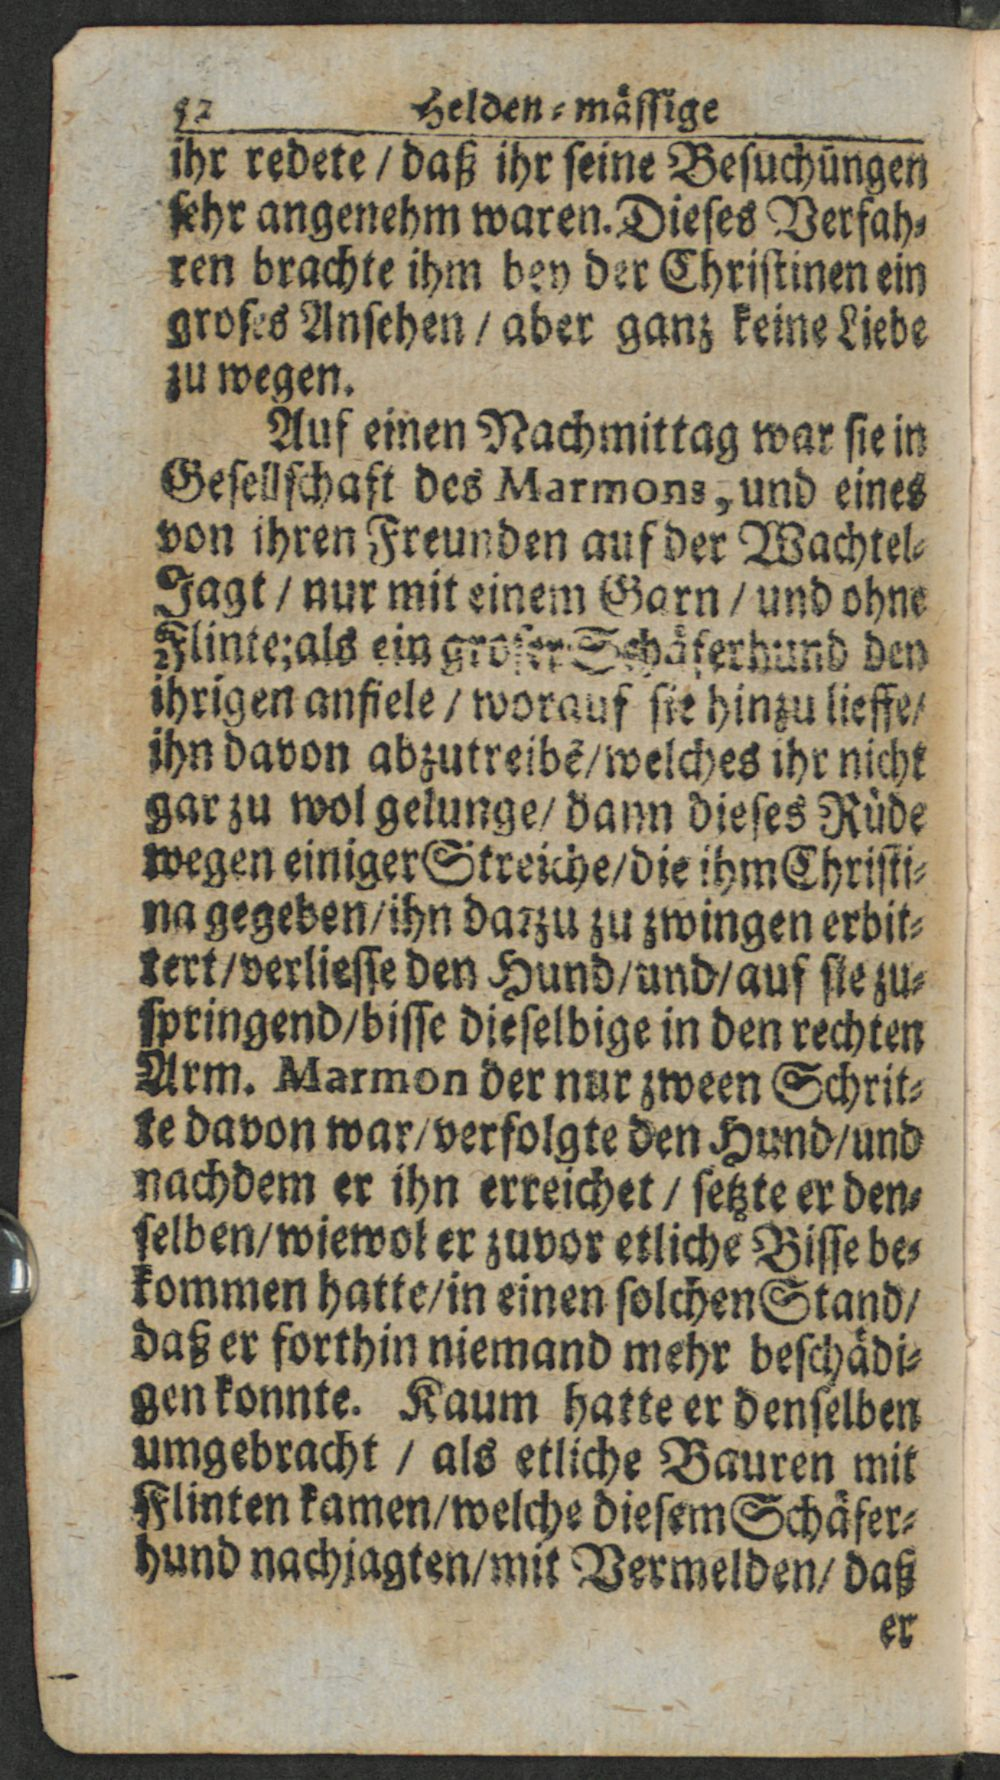 52 Helden-mässige
ihr redete / daß ihr seine Besuchüngen
sehr angenehm waren. Dieses Verfah-
ren brachte ihm bey der Christinen ein
groses Ansehen / aber ganz keine Liebe
zu wegen.
Auf einen Nachmittag war sie in
Gesellschaft des Marmons, und eines
von ihren Freunden auf der Wachtel-
Jagt / nur mit einem Garn / und ohne
Flinte; als ein groser Schäferhund den
ihrigen anfiele / worauf sie hinzu lieffe/
ihn davon abzutreibẽ/welches ihr nicht
gar zu wol gelunge/ dann dieses Rüde
wegen einiger Streiche/die ihm Christi-
na gegeben/ihn darzu zu zwingen erbit-
tert/verliesse den Hund/und/auf sie zu-
springend/bisse dieselbige in den rechten
Arm. Marmon der nur zween Schrit-
te davon war/verfolgte den Hund/und
nachdem er ihn erreichet / setzte er den-
selben/wiewol er zuvor etliche Bisse be-
kommen hatte/in einen solchen Stand/
daß er forthin niemand mehr beschädi-
gen konnte. Kaum hatte er denselben
umgebracht / als etliche Bauren mit
Flinten kamen/welche diesem Schäfer-
hund nachjagten/mit Vermelden/ daß
er